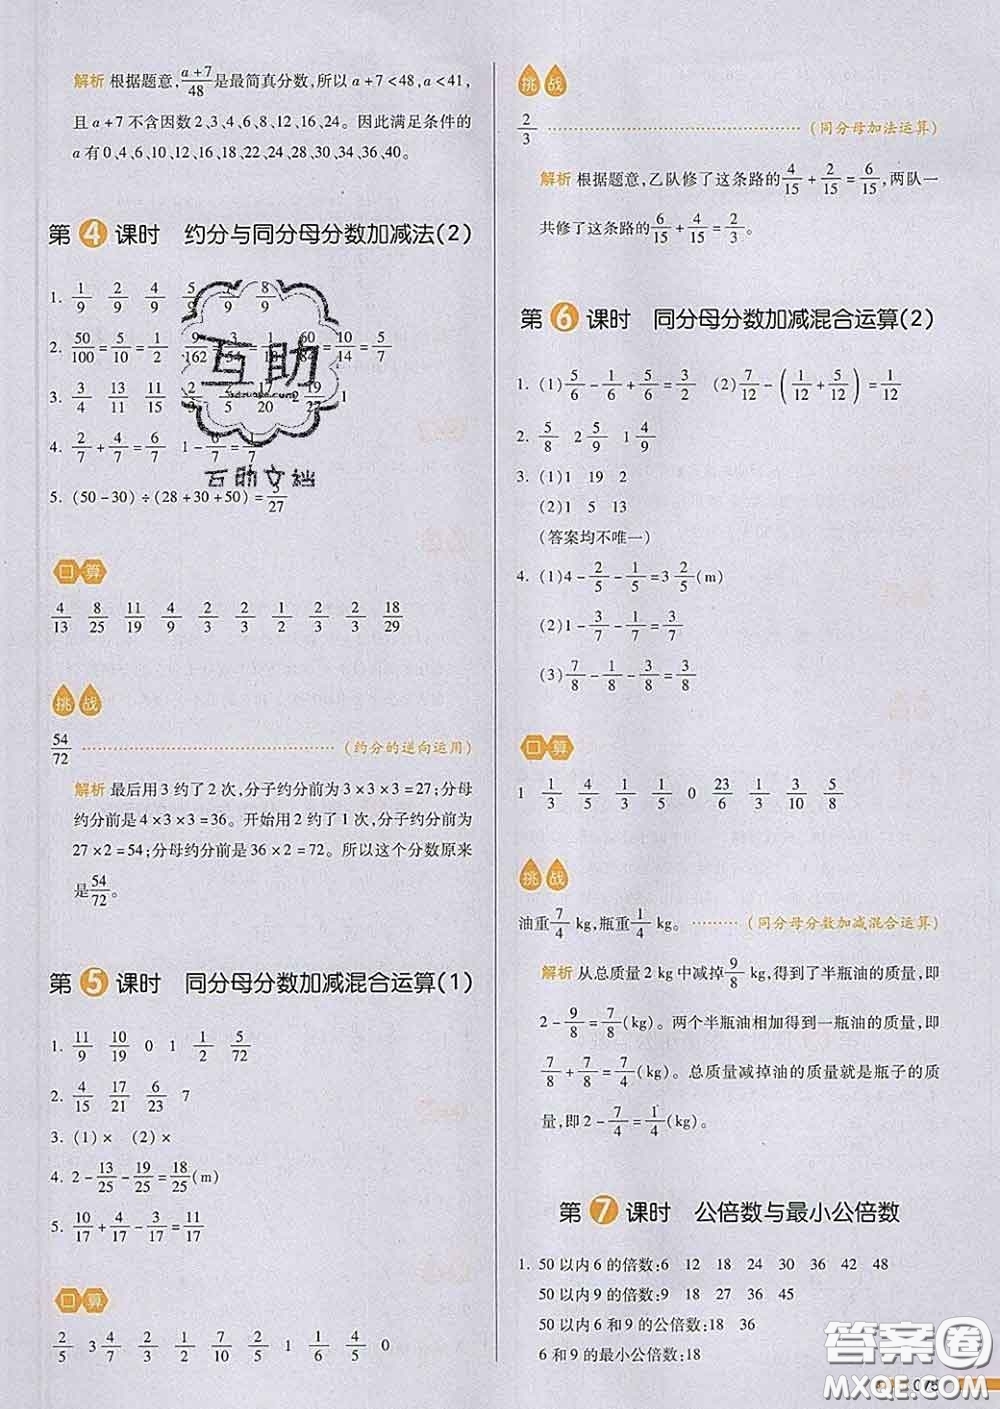 解析 根据题意,(a+7)/48是最简真分数,所以 a+7<48,a<41,
且 a+7 不含因数 2、3、4、6、8、12、16、24。因此满足条件的
a 有 0、4、6、10、12、16、18、22、24、28、30、34、36、40。
第4课时 约分与同分母分数加减法(2)
1. 1/9 2/9 4/9 5/9 7/9 8/9
2. 50/100=5/10=1/2
60/84=10/14=5/7
3. 3/4 13/11 11/15 2/3 2/5 17/20 2 19/27 1
4. 2/7+4/7=6/7 1-6/7=1/7
5. (50-30)÷(28+30+50)=5/27
口算
4/13 8/25 11/19 4/9 2/3 2/3 1/2 2/3 18/29
挑战
54/72 (约分的逆向运用)
解析 最后用 3 约了 2 次,分子约分前为 3×3×3=27;分母
约分前是 4×3×3=36。开始用 2 约了 1 次,分子约分前为
27×2=54;分母约分前是 36×2=72。所以这个分数原来
是54/72。
第5课时 同分母分数加减混合运算(1)
1. 11/9 10/19 0 1 1/2 5/72
2. 4/15 17/21 6/23 7
3. (1)× (2)×
4. 2-13/25-19/25=18/25(m)
5. 10/17+4/17-3/17=11/17
口算
2/5 3 4/7 2/11 4/9 2/5 1 1/6 4/5 0
挑战
2/3 (同分母加法运算)
解析 根据题意,乙队修了这条路的4/15+2/15=6/15,两队一
共修了这条路的6/15+4/15=2/3。
第6课时 同分母分数加减混合运算(2)
1. (1)5/6-1/6+5/6=3/2 (2)7/12-(1/12+5/12)=1/12
2. 5/8 2 5/9 1 4/9
3. (1)1 19 2
(2)1 5 13
(答案均不唯一)
4. (1)4-2/5-1/5=3 2/5(m)
(2)1-3/7-1/7=3/7
(3)7/8-1/8-3/8=3/8
口算
1 1/3 4/5 1/3 1/5 0 23/6 1/3 3/10 5/8
挑战
油重7/4 kg,瓶重1/4 kg。 (同分母分数加减混合运算)
解析 从总质量 2 kg 中减掉9/8 kg,得到了半瓶油的质量,即
2-9/8=7/8(kg)。两个半瓶油相加得到一瓶油的质量,即
7/8+7/8=7/4(kg)。总质量减掉油的质量就是瓶子的质
量,即 2-7/4=1/4(kg)。
第7课时 公倍数与最小公倍数
1. 50 以内 6 的倍数:6 12 18 24 30 36 42 48
50 以内 9 的倍数:9 18 27 36 45
50 以内 6 和 9 的公倍数:18 36
6 和 9 的最小公倍数:18
075
互助
互助文档
答案圈
MXQE.COM